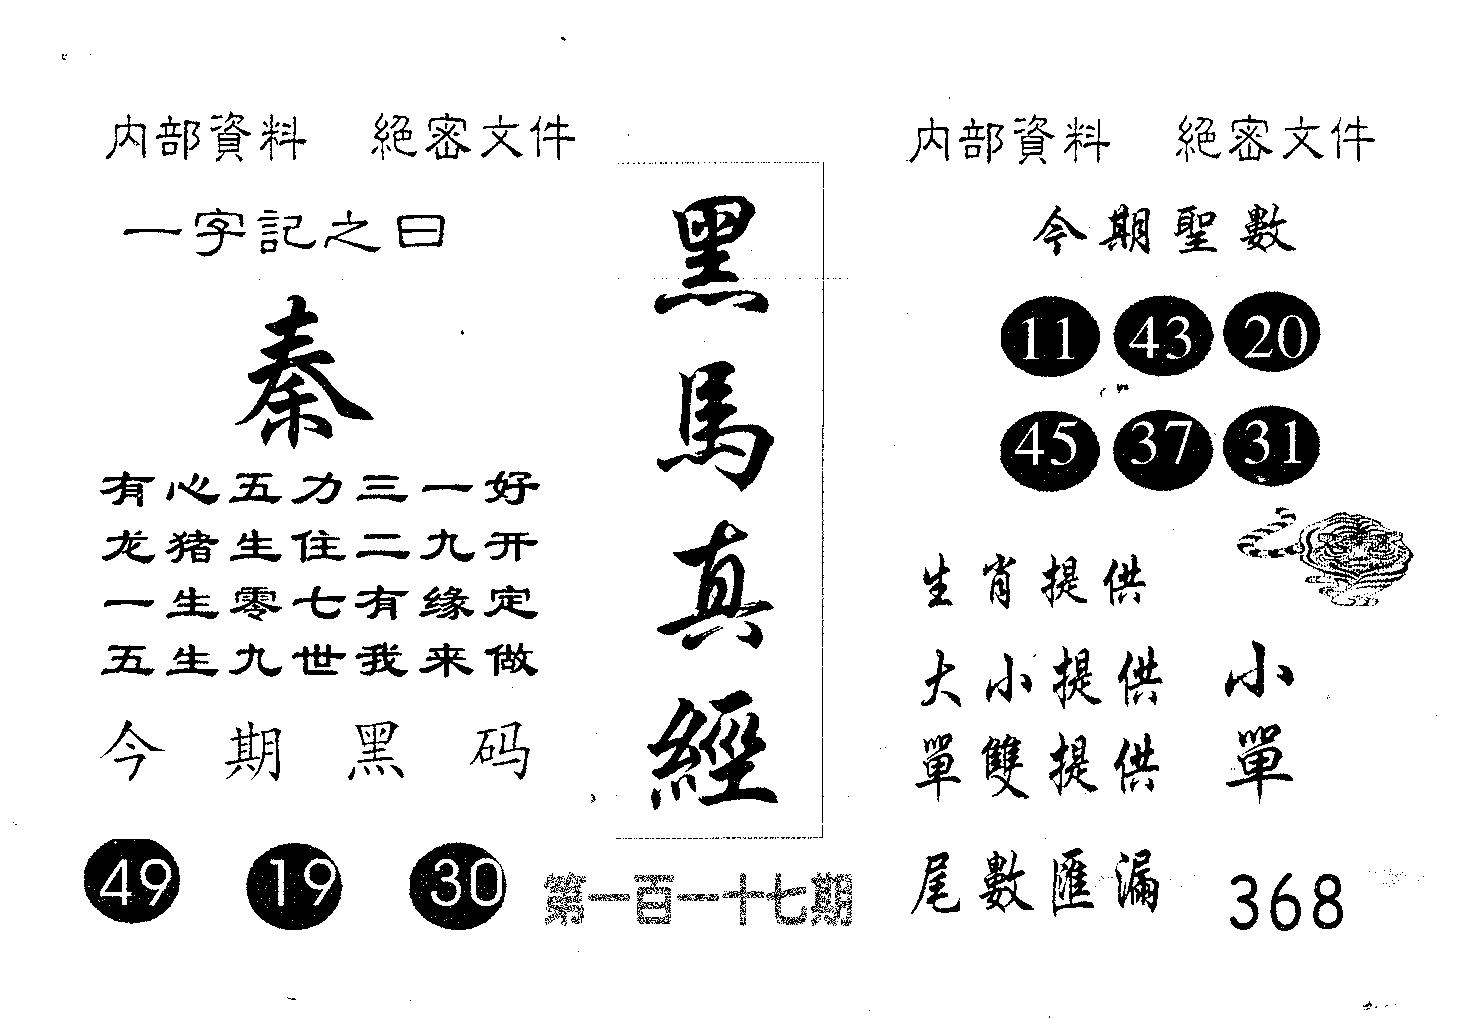 内部資料 絕密文件
一字記之曰
秦
有心五力三一好
龙猪生住二九开
一生零七有缘定
五生九世我来做
今期黑码
49 19 30
黑馬真經
第一百一十七期
内部資料 絕密文件
今期聖數
11 43 20
45 37 31
生肖提供
大小提供 小
單雙提供 單
尾數匯漏 368